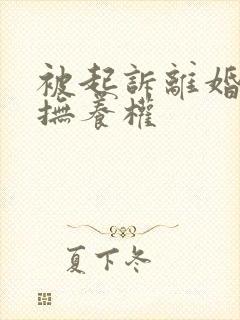 被起訴離婚
撫養權
夏下冬